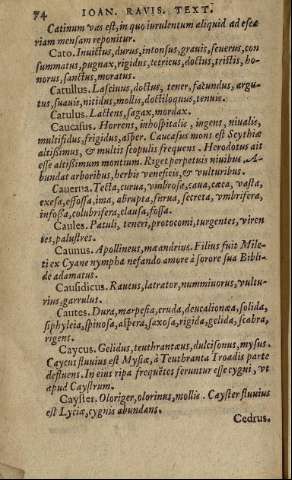 74 IOAN. RAVIS. TEXT.
Catinum vas est, in quo iurulentum aliquid ad escariam mensam reponitur.
Cato. Inuictus, durus, intonsus, grauis, seuerus, consummatus, pugnax, rigidus, tetricus, doctus, tristis, honorus, sanctus, moratus.
Catullus. Lasciuus, doctus, tener, facundus, argutus, suauis, nitidus, mollis, doctiloquus, tenuis.
Catulus. Lactens, sagax, mordax.
Caucasus. Horrens, inhospitalis, ingens, niualis,
multifidus, frigidus, asper. Caucasus mons est Scythiæ
altissimus, & multis scopulis frequens. Herodotus ait
esse altissimum montium. Riget perpetuis niuibus. Abundat arboribus, herbis veneficis, & vulturibus.
Cauerna. Tecta, curua, vmbrosa, caua, cæca, vasta,
exesa, effossa, ima, abrupta, furua, secreta, vmbrifera,
infossa, colubrifera, clausa, fossa.
Caules. Patuli, teneri, protocomi, turgentes, virentes, palustres.
Caunus. Apollineus, mæandrius. Filius fuit Mileti ex Cyane nympha nefando amore à sorore sua Biblide adamatus.
Causidicus. Raucus, latrator, nummiuorus, vulturius, garrulus.
Cautes. Dura, marpesia, cruda, deucalionæa, solida,
siphyleia, spinosa, aspera, saxosa, rigida, gelida, scabra,
rigens.
Caycus. Gelidus, teuthrantæus, dulcisonus, mysus.
Caycus fluuius est Mysiæ, à Teuthranta Troadis parte
defluens. In eius ripa frequẽtes feruntur esse cygni, vt
apud Caystrum.
Cayster. Oloriger, olorinus, mollis. Cayster fluuius
est Lyciæ, cygnis abundans.
Cedrus.